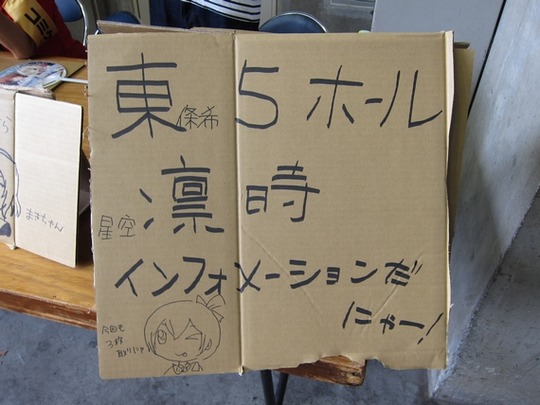 東條希 5ホール
星空凛時
インフォメーションだ
にゃー!
今回も
3枚
取りにゃ
まきちゃん